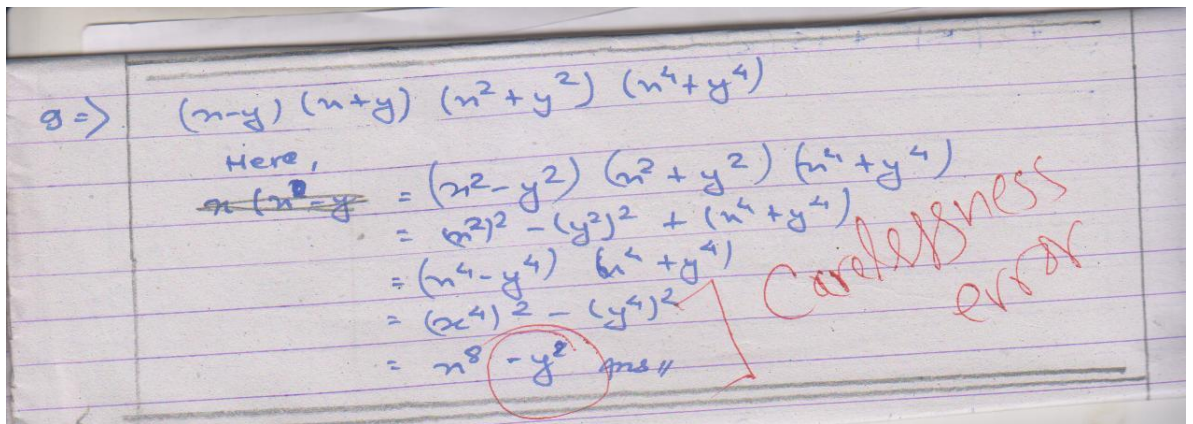 g => (x-y) (x+y) (x² + y²) (x⁴+y⁴)
Here,
x (x²-y = (x²-y²) (x² + y²) (x⁴ + y⁴)
= (x²)² - (y²)² + (x⁴ + y⁴)
= (x⁴-y⁴) (x⁴ + y⁴)
= (x⁴)² - (y⁴)²
= x⁸ - y² ans,,
Carelessness
error